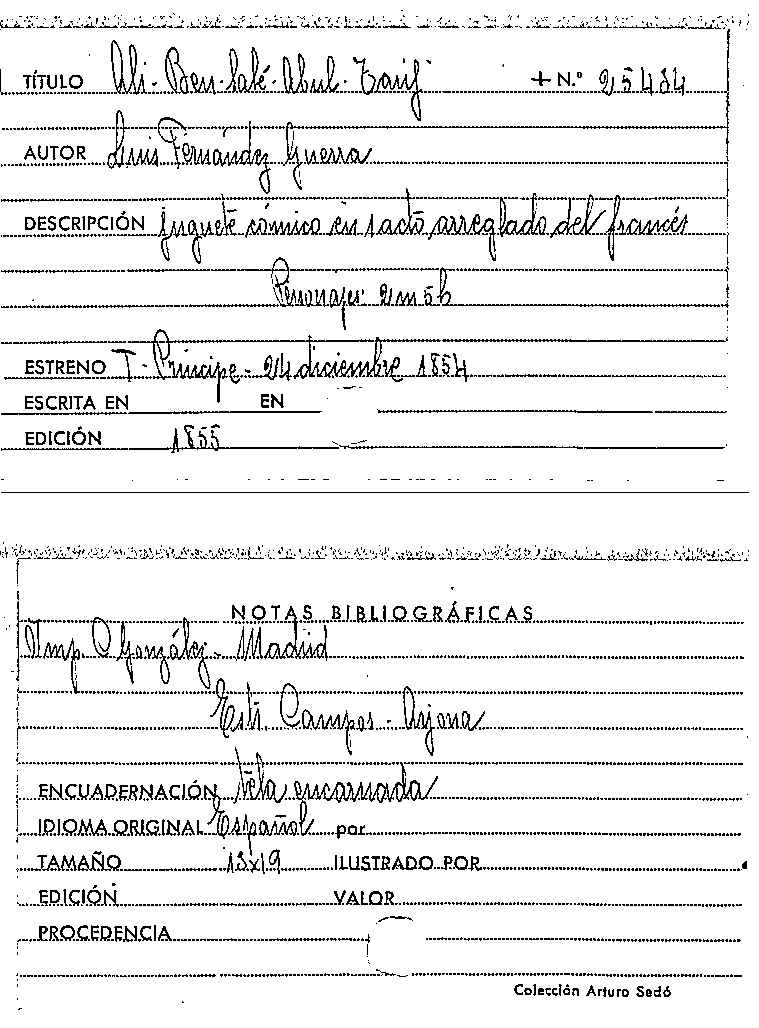 TÍTULO Ali-Ben-Salé-Abul-Tarif + N.º 25484
AUTOR Luis Fernández Guerra
DESCRIPCIÓN juguete cómico en 1 acto, arreglado del francés
Personajes 2m 5h
ESTRENO T. Principe - 24 diciembre 1854
ESCRITA EN EN
EDICIÓN 1855
NOTAS BIBLIOGRÁFICAS
Imp C González - Madrid
Estr. Campos - Arjona
ENCUADERNACIÓN tela encarnada
IDIOMA ORIGINAL Español por
TAMAÑO 13x19 ILUSTRADO POR
EDICIÓN VALOR
PROCEDENCIA
Colección Arturo Sedó